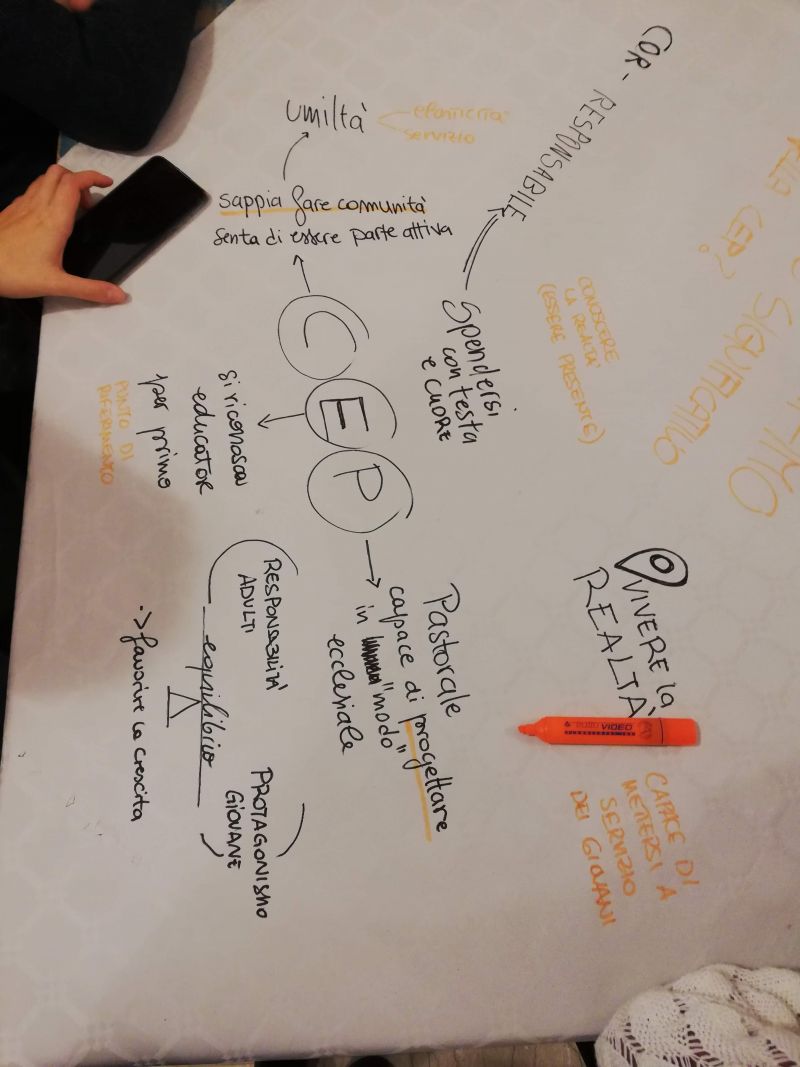 COR-RESPONSABILE
umiltà
elasticità
servizio
sappia fare comunità
senta di essere parte attiva
Spendersi
con testa
e CUORE
CONOSCERE
LA REALTA'
(ESSERE PRESENTE)
ALLA CEP?
SIGNIFICATIVO
C
E
P
si riconosca
educator
per primo
PUNTO DI
RIFERIMENTO
Pastorale
capace di progettare
in "modo"
ecclesiale
VIVERE la
REALTÀ
VIDEO
CAPACE DI
METTERSI A
SERVIZIO
DEI GIOVANI
RESPONSABILITA'
ADULTI
equilibrio
PROTAGONISMO
GIOVANE
-> favorire la crescita